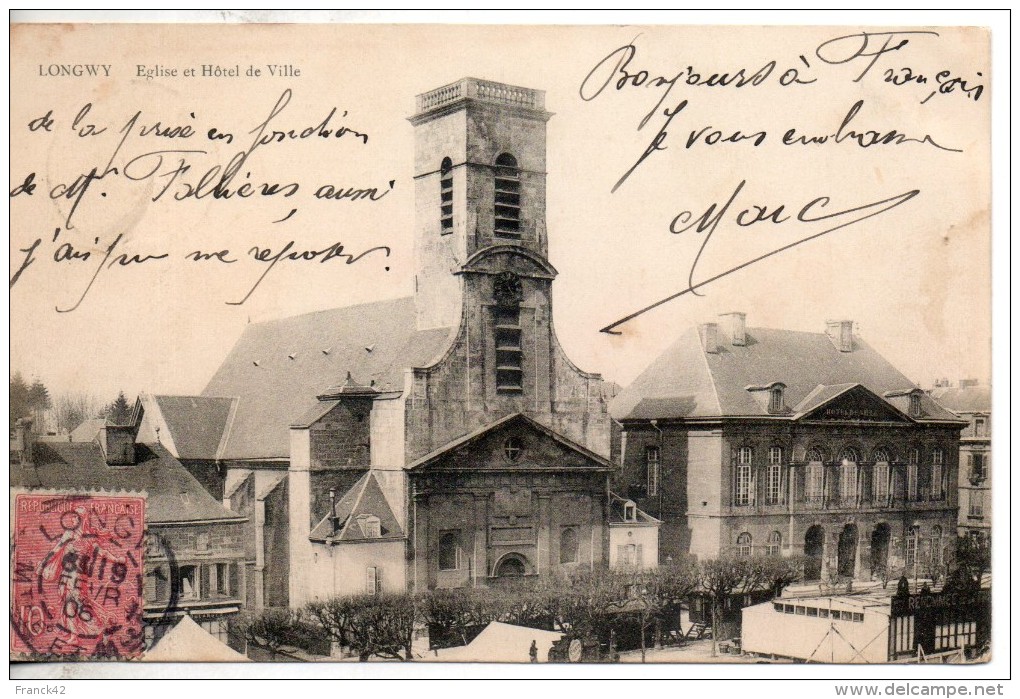 LONGWY Eglise et Hôtel de Ville
de la prise en fonction
de Mr. Fallières aussi
j'ai pu me reposer.
Bonjours à François
Je vous embrasse
Marc
HOTEL DE VILLE
REPUBLIQUE FRANÇAISE
10
LONGWY
19
06
© Franck42
www.delcampe.net